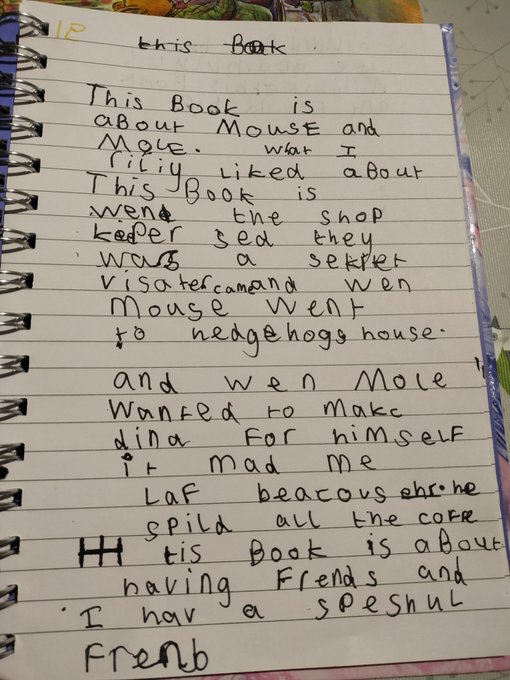 1P
this Book
This Book is
aBout MOUSE and
MOLE. what I
riliy LIKED aBout
This Book is
wene the shop
keeper sed they
was a sekret
visater came and wen
Mouse went
to hedgehogs house.
and wen Mole
wanted to make
dina For himself
it mad me
LaF beacous he
spild all the
tis Book is aBout
having Frends and
I hav a speshuL
Frenb